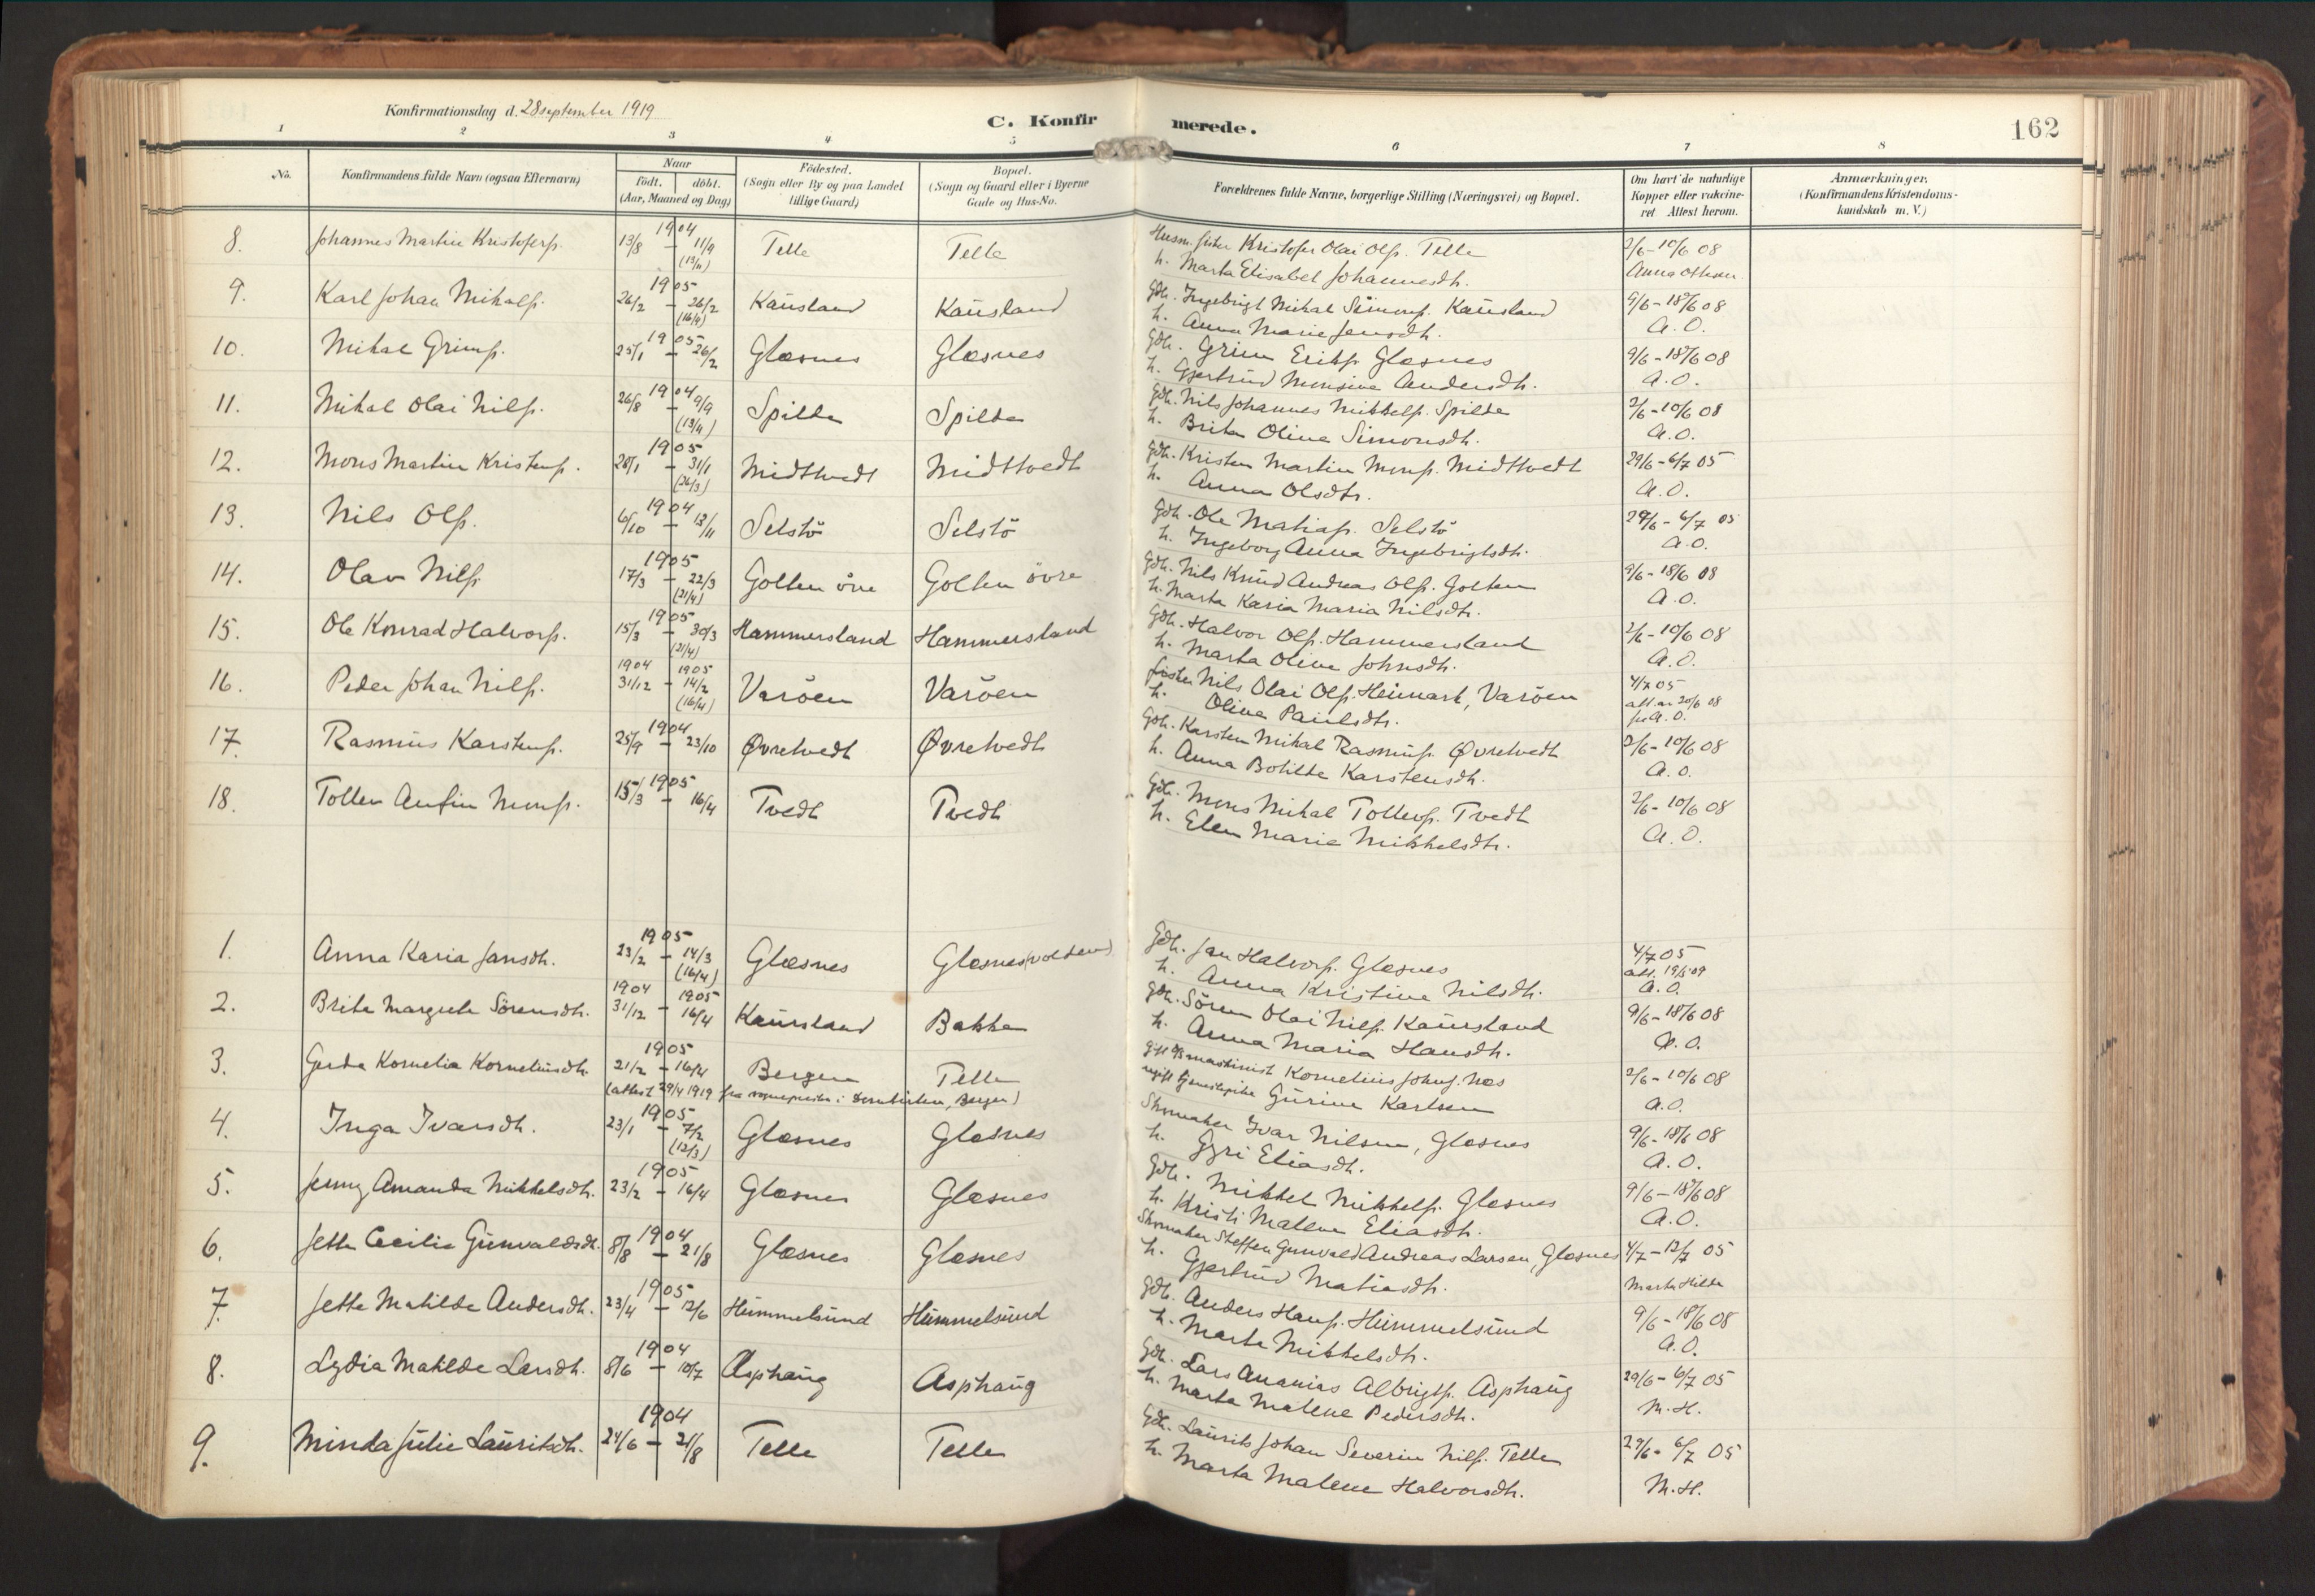 Konfirmationsdag d. 28 september 1919
C. Konfirmerede.
162
1 2 3 4 5 6 7 8
No.
Konfirmandens fulde Navn (ogsaa Efternavn)
Naar
födt. döbt.
(Aar, Maaned og Dag)
Födested.
(Sogn eller By og paa Landet
tillige Gaard)
Bopæl.
(Sogn og Gaard eller i Byerne
Gade og Hus-No.
Forældrenes fulde Navne, borgerlige Stilling (Næringsvei) og Bopæl.
Om havt de naturlige
Kopper eller vakcine-
ret Attest herom.
Anmærkninger.
(Konfirmandens Kristendoms-
kundskab m. V.)
8. Johannes Martin Kristofers. 1904 13/8 – 11/9 (13/11) Telle Telle Husm. fisker Kristofer Olai Ols. Telle 2/6 – 10/6 08
h. Marta Elisabet Johannesdtr. Anna Olsen
9. Karl Johan Mikals. 1905 26/2 – 26/2 (16/4) Kausland Kausland Gdbr. Ingebrigt Mikal Simons. Kausland 9/6 – 18/6 08
h. Anna Marie Jensdtr. A.O.
10. Mikal Grims. 1905 25/1 – 26/2 Glæsnes Glæsnes Gdbr. Grim Eriks. Glæsnes 9/6 – 18/6 08
h. Gjertrud Monsine Andersdtr. A.O.
11. Mikal Olai Nils. 1904 26/8 – 9/9 (13/4) Spilde Spilde Gdbr. Nils Johannes Mikkels. Spilde 2/6 – 10/6 08
h. Brita Oline Simonsdtr. A.O.
12. Mons Martin Kristens. 1905 28/1 – 31/1 (26/3) Midttvedt Midttvedt Gdbr. Kristen Martin Mons. Midttvedt 29/6 – 6/7 05
h. Anna Olsdtr. A.O.
13. Nils Ols. 1904 6/10 – 13/11 Selstö Selstö Gdbr. Ole Matias. Selstö 29/6 – 6/7 05
h. Ingeborg Anna Ingebrigtsdtr. A.O.
14. Olav Nils. 1905 17/3 – 22/3 (21/4) Golten övre Golten övre Gdbr. Nils Knud Andreas Ols. Golten 9/6 – 18/6 08
h. Marta Karia Maria Nilsdtr. A.O.
15. Ole Konrad Halvors. 1905 15/3 – 30/3 (21/4) Hammersland Hammersland Gdbr. Halvor Ols. Hammersland 2/6 – 10/6 08
h. Marta Oline Johnsdtr. A.O.
16. Peder Johan Nils. 1904 31/12 – 1905 14/2 (16/4) Varöen Varöen fisker Nils Olai Ols. Heimark, Varöen 4/7 05
h. Oline Paulsdtr. att. av 20/6 08 fra A.O.
17. Rasmus Karstens. 1904 25/9 – 23/10 Øvretvedt Øvretvedt Gdbr. Karsten Mikal Rasmus. Øvretvedt 2/6 – 10/6 08
h. Anna Botilde Karstensdtr. A.O.
18. Tollev Anfin Mons. 1905 15/3 – 16/4 Tvedt Tvedt Gdbr. Mons Mikal Tollevs. Tvedt 2/6 – 10/6 08
h. Elen Marie Mikkelsdtr. A.O.
1. Anna Karia Jansdtr. 1905 23/2 – 14/3 (16/4) Glæsnes Glæsnes (volden) Gdbr. Jan Halvors. Glæsnes 4/7 05
h. Anna Kristine Nilsdtr. att. 19/5 09 A.O.
2. Brita Margrete Sörensdtr. 1904 31/12 – 1905 16/4 Kausland Bakke Gdbr. Sören Olai Nils. Kausland 9/6 – 18/6 08
h. Anna Maria Hansdtr. A.O.
3. Gerda Kornelia Korneliusdtr. 1905 21/2 – 16/4 Bergen Telle gift maskinist Kornelius Johns. Næs 2/6 – 10/6 08
(attest 29/4 1919 fra sogneprest i Domkirken, Bergen) ugift tjenestepike Gurine Karlsen A.O.
4. Inga Ivarsdtr. 1905 23/1 – 7/2 (12/3) Glæsnes Glæsnes Skomaker Ivar Nilsen, Glæsnes 9/6 – 18/6 08
h. Gyri Eliasdtr. A.O.
5. Jenny Amanda Mikkelsdtr. 1905 23/2 – 16/4 Glæsnes Glæsnes Gdbr. Mikkel Mikkels. Glæsnes 9/6 – 18/6 08
h. Kristi Malene Eliasdtr. A.O.
6. Jette Cecilie Gunvaldsdtr. 1904 8/8 – 21/8 Glæsnes Glæsnes Skomaker Steffen Gunvald Andreas Larsen, Glæsnes 4/7 – 12/7 05
h. Gjertrud Matiasdtr. Marta Hilde
7. Jette Matilde Andersdtr. 1905 23/4 – 12/6 Hummelsund Hummelsund Gdbr. Anders Hans. Hummelsund 9/6 – 18/6 08
h. Marta Mikkelsdtr. A.O.
8. Lydia Matilde Larsdtr. 1904 8/6 – 10/7 Asphaug Asphaug Gdbr. Lars Ananias Albrigts. Asphaug 29/6 – 6/7 05
h. Marta Malene Pedersdtr. M.H.
9. Minda Julie Lauritsdtr. 1904 24/6 – 21/8 Telle Telle Gdbr. Laurits Johan Severin Nils. Telle 29/6 – 6/7 05
h. Marta Malene Halvorsdtr. M.H.